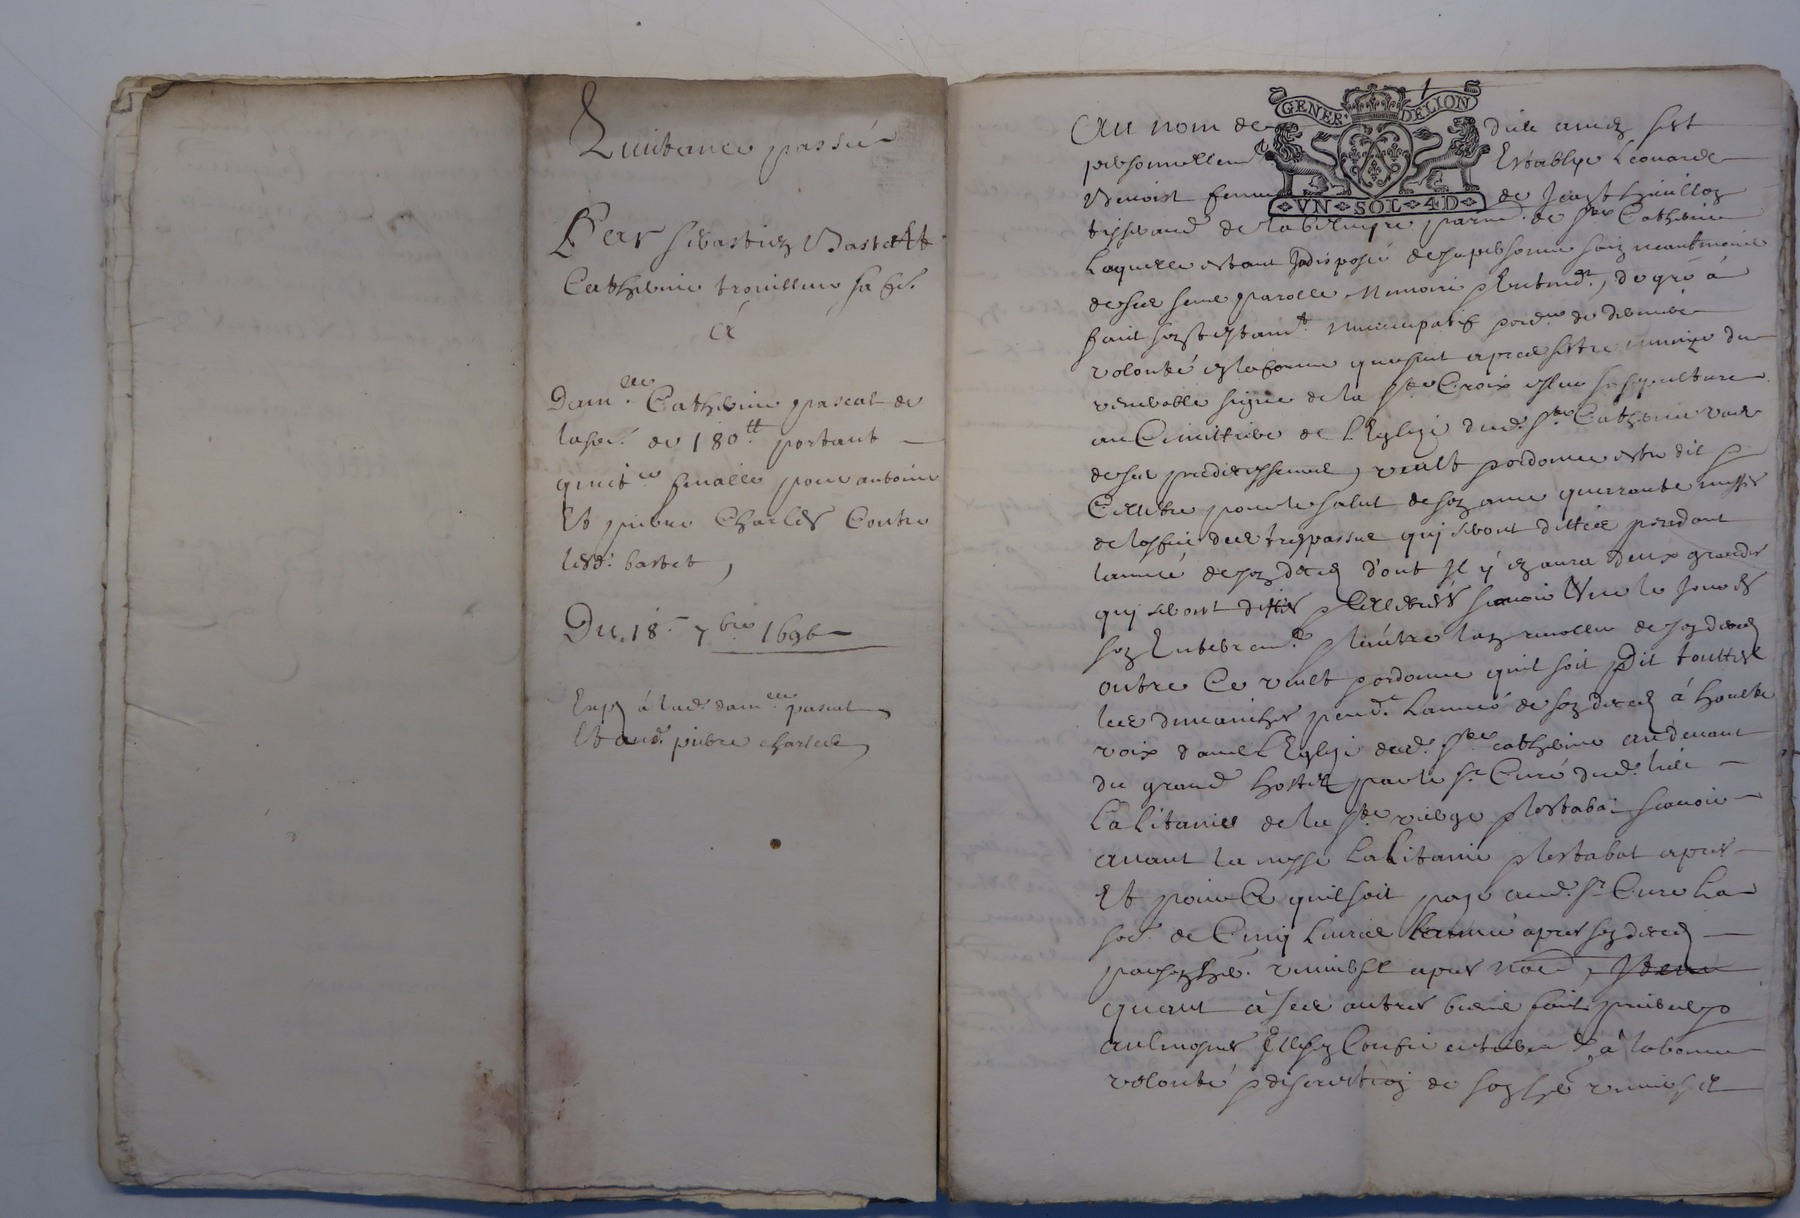 Quittance passée
Par sebastien Bastet et
Catherine trouilleux sa fe.
a
Dam.elle Catherine pascal de
la so.e de 180 tt portant
quit.ce finalle pour antoine
Et pierre Charles Contre
lesd. bastet,
Du 18.e 7bre 1696
Exp a lad. dam.elle pascal
Et aud. pierre charles
1
GENER. DE LION
VN SOL 4D
Au nom de dieu amen soit
personnellem.t Establye Leonarde
Benoist femme de Jean
tisserand de parr. de Ste Catherine
Laquelle estant Indisposée de sa personne saine neantmoins
de ses sens parolle Memoire & Entend.t, de gré a
fait son testam.t Nuncupatif & ord.ce de derniere
volonté en la forme que suit apres s'estre munye du
venerable signe de la Ste Croix eslue sa sepulture
au Cimittiere de L'Eglize dud. Ste Catherine vase
de ses predecesseurs, veult & ordonne estre dit &
Cellebré pour le salut de son ame quarrante messes
de l'office des trespasses qui seront dittes pendant
l'année de son deces d'ont Il y en aura deux grandes
qui seront dittes & Cellebrées scavoir Une le Jour de
son Enterrem.t & l'autre l'an revollu de son deces
outre Ce veult & ordonne quil soit dit touttes
les dimanches pend.t L'année de son deces á haulte
voix dans L'Eglize dud. Ste Catherine au devant
du grand hostel par le Sr Curé dud. lieu
La Litanies de la Ste vierge & lestabat scavoir
avant la messe La Litanie & lestabat apres
Et pour Ce quil soit payé aud. Sr Curé La
so.e de Cinq Livres l'année apres son deces
par son her. universel apres nommé,
quant a ses autres biens faits prieres &
aulmosnes Elle s'en Confie a la bonne
volonté & discretion de son her universel